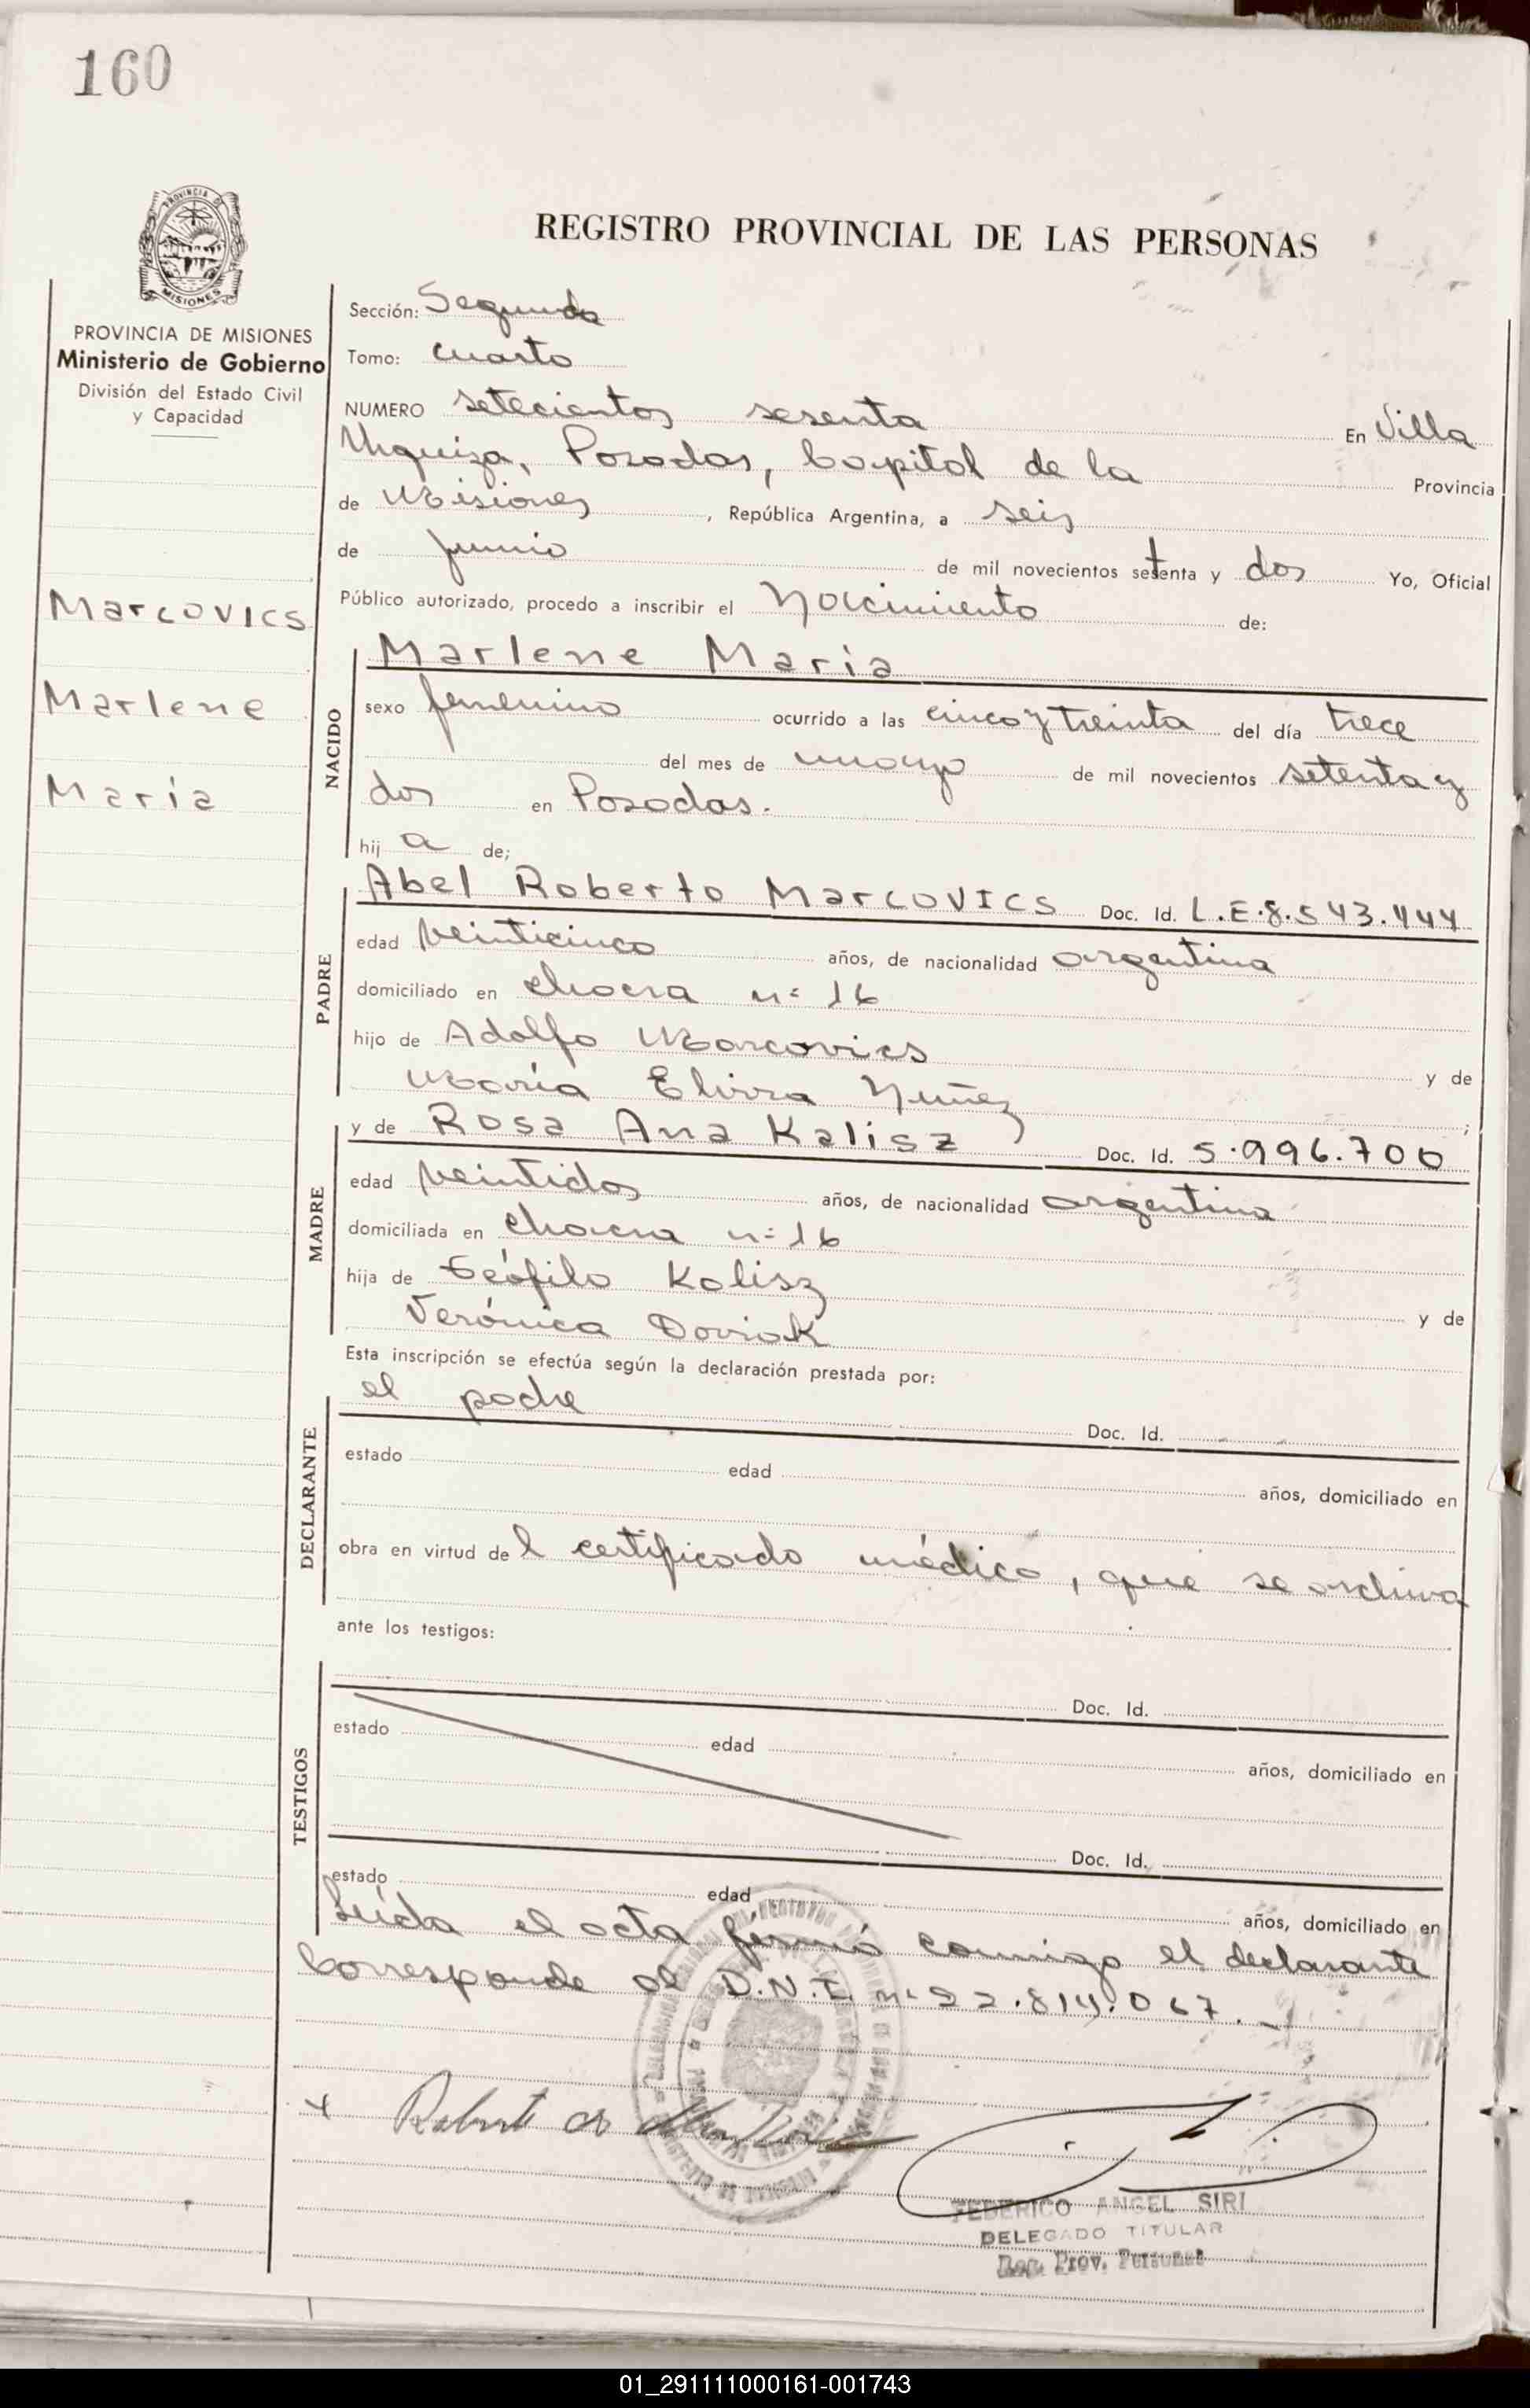 160
PROVINCIA DE
MISIONES
REGISTRO PROVINCIAL DE LAS PERSONAS
PROVINCIA DE MISIONES
Ministerio de Gobierno
División del Estado Civil
y Capacidad
Marcovics
Marlene
María
Sección: Segunda
Tomo: cuarto
NUMERO setecientos sesenta En Villa
Urquiza, Posadas, Capital de la Provincia
de Misiones, República Argentina, a seis
de junio de mil novecientos setenta y dos Yo, Oficial
Público autorizado, procedo a inscribir el Nacimiento de:
NACIDO
Marlene María
sexo femenino ocurrido a las cinco y treinta del día trece
del mes de mayo de mil novecientos setenta y
dos en Posadas.
hij a de;
PADRE
Abel Roberto Marcovics Doc. Id. L.E.8.543.444
edad veinticinco años, de nacionalidad argentina
domiciliado en chacra nº 16
hijo de Adolfo Marcovics y de
María Elvira Nuñez ;
MADRE
y de Rosa Ana Kalisz Doc. Id. 5.996.700
edad veintidos años, de nacionalidad argentina
domiciliada en chacra nº 16
hija de Teófilo Kalisz y de
Verónica Doviak
Esta inscripción se efectúa según la declaración prestada por:
DECLARANTE
el padre Doc. Id.
estado edad años, domiciliado en
obra en virtud del certificado médico, que se archiva
ante los testigos:
TESTIGOS
Doc. Id.
estado edad años, domiciliado en
Doc. Id.
estado edad años, domiciliado en
Leída el acta firmó conmigo el declarante
Corresponde al D.N.I. nº 22.814.067.
FEDERICO ANGEL SIRI
DELEGADO TITULAR
Reg. Prov. Personas
01_291111000161-001743